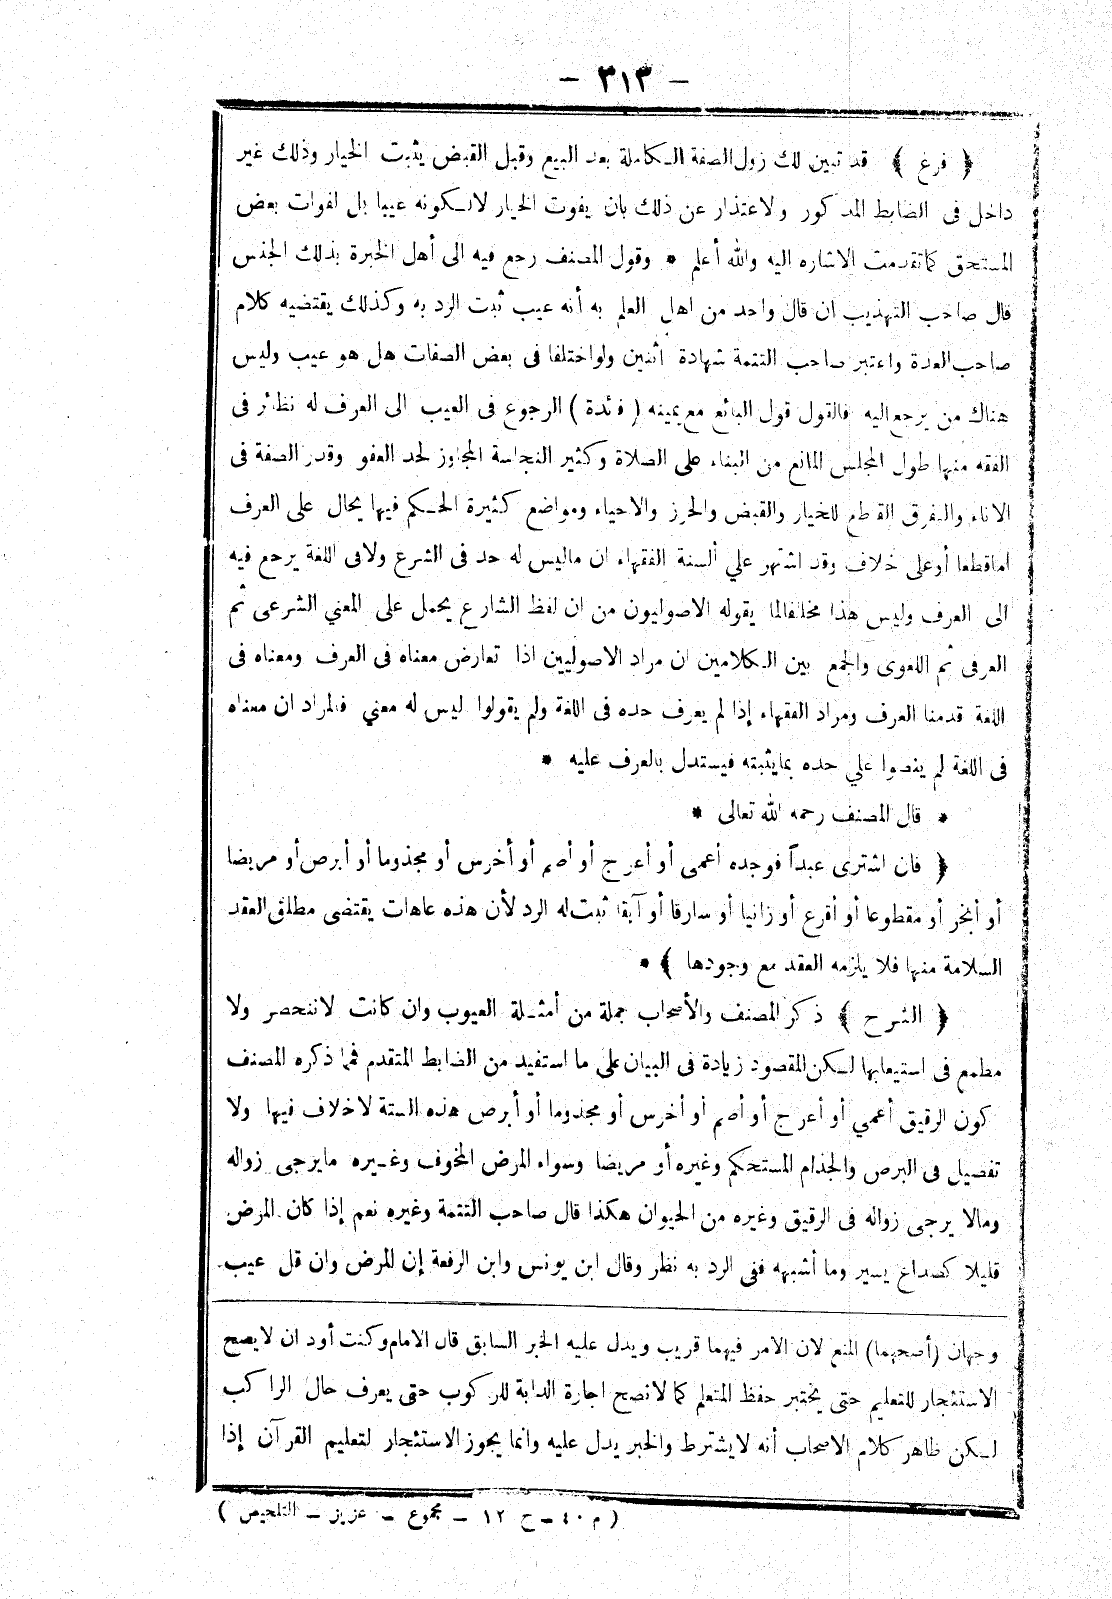 — ٣١٣ —
﴿ فرغ ﴾ قد تبين لك زول الصفة الكاملة بعد البيع وقبل القبض يثبت الخيار وذلك غير
داخل فى الضابط المذكور ولاعتذار عن ذلك بان يفوت الخيار لالكونه عيبا بل لفوات بعض
المستحق كماتقدمت الاشاره اليه والله أعلم * وقول المصنف رجع فيه الى أهل الخبرة بذلك الجنس
قال صاحب التهذيب ان قال واحد من اهل العلم به أنه عيب ثبت الرد به وكذلك يقتضيه كلام
صاحب العدة واعتبر صاحب التتمة شهادة اثنين ولواختلفا فى بعض الصفات هل هو عيب وليس
هناك من يرجع اليه فالقول قول البائع مع يمينه ( فائدة ) الرجوع فى العيب الى العرف له نظائر فى
الفقه منها طول المجلس المانع من البناء على الصلاة وكثير النجاسة المجاوز لحد العفو وقدر الصفة فى
الاناء والتفرق القاطع للخيار والقبض والحرز والاحياء ومواضع كثيرة الحكم فيها يحال على العرف
اماقطعا أوعلى خلاف وقد اشتهر علي ألسنة الفقهاء ان ماليس له حد فى الشرع ولافى اللغة يرجع فيه
الى العرف وليس هذا مخالفالما يقوله الاصوليون من ان لفظ الشارع يحمل على المعني الشرعى ثم
العرفى ثم اللغوى والجمع بين الكلامين ان مراد الاصوليين اذا تعارض معناه فى العرف ومعناه فى
اللغة قدمنا العرف ومراد الفقهاء إذا لم يعرف حده فى اللغة ولم يقولوا ليس له معني فالمراد ان معناه
فى اللغة لم ينصوا علي حده بمايثبته فيستدل بالعرف عليه *
* قال المصنف رحمه الله تعالى *
﴿ فان اشترى عبداً فوجده أعمى أو أعرج أو أصم أو أخرس أو مجذوما أو أبرص أو مريضا
أو أبخر أو مقطوعا أو أقرع أو زانيا أو سارقا أو آبقا ثبت له الرد لأن هذه عاهات يقتضى مطلق العقد
السلامة منها فلا يلزمه العقد مع وجودها ﴾ *
﴿ الشرح ﴾ ذكر المصنف والأصحاب جملة من أمثلة العيوب وان كانت لاتنحصر ولا
مطمع فى استيعابها لكن المقصود زيادة فى البيان على ما استفيد من الضابط المتقدم فمما ذكره المصنف
كون الرقيق أعمي أو أعرج أو أصم أو أخرس أو مجذوما أو أبرص هذه الستة لاخلاف فيها ولا
تفصيل فى البرص والجذام المستحكم وغيره أو مريضا وسواء المرض المخوف وغيره مايرجى زواله
ومالا يرجى زواله فى الرقيق وغيره من الحيوان هكذا قال صاحب التتمة وغيره نعم إذا كان المرض
قليلا كصداع يسير وما أشبهه ففى الرد به نظر وقال ابن يونس وابن الرفعة إن المرض وان قل عيب
وجهان (أصحهما) المنع لان الامر فيهما قريب ويدل عليه الخبر السابق قال الامام وكنت أود ان لايصح
الاستئجار للتعليم حتى يختبر حفظ المتعلم كما لاتصح اجارة الدابة للركوب حتى يعرف حال الراكب
لكن ظاهر كلام الاصحاب أنه لايشترط والخبر يدل عليه وانما يجوز الاستئجار لتعليم القرآن إذا
( م ٤٠ – ج ١٢ – مجموع – عزيز – التلخيص )